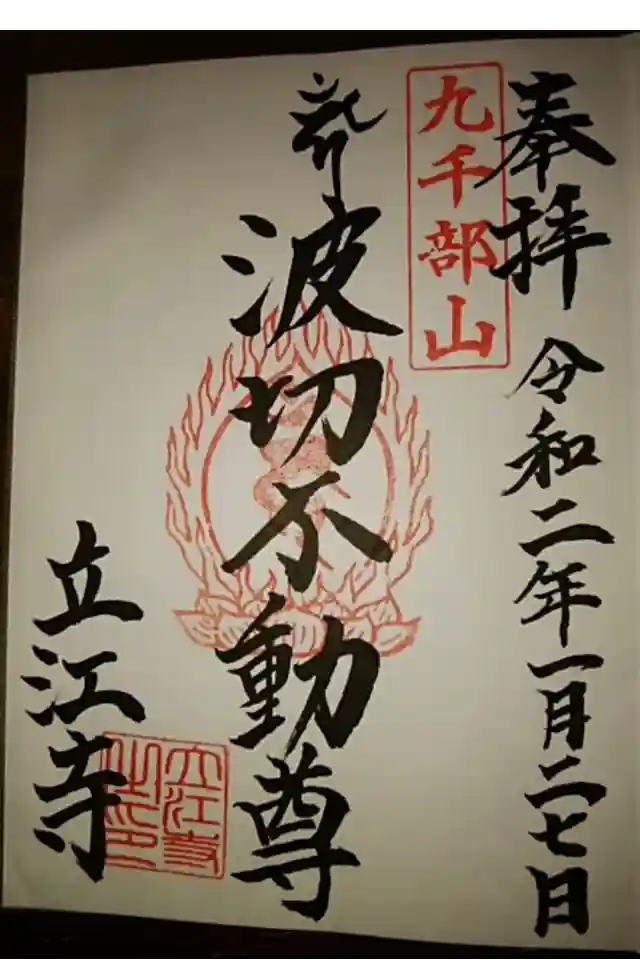 奉拝 令和二年一月二七日
九千部山
波切不動尊
立江寺
立江寺之印